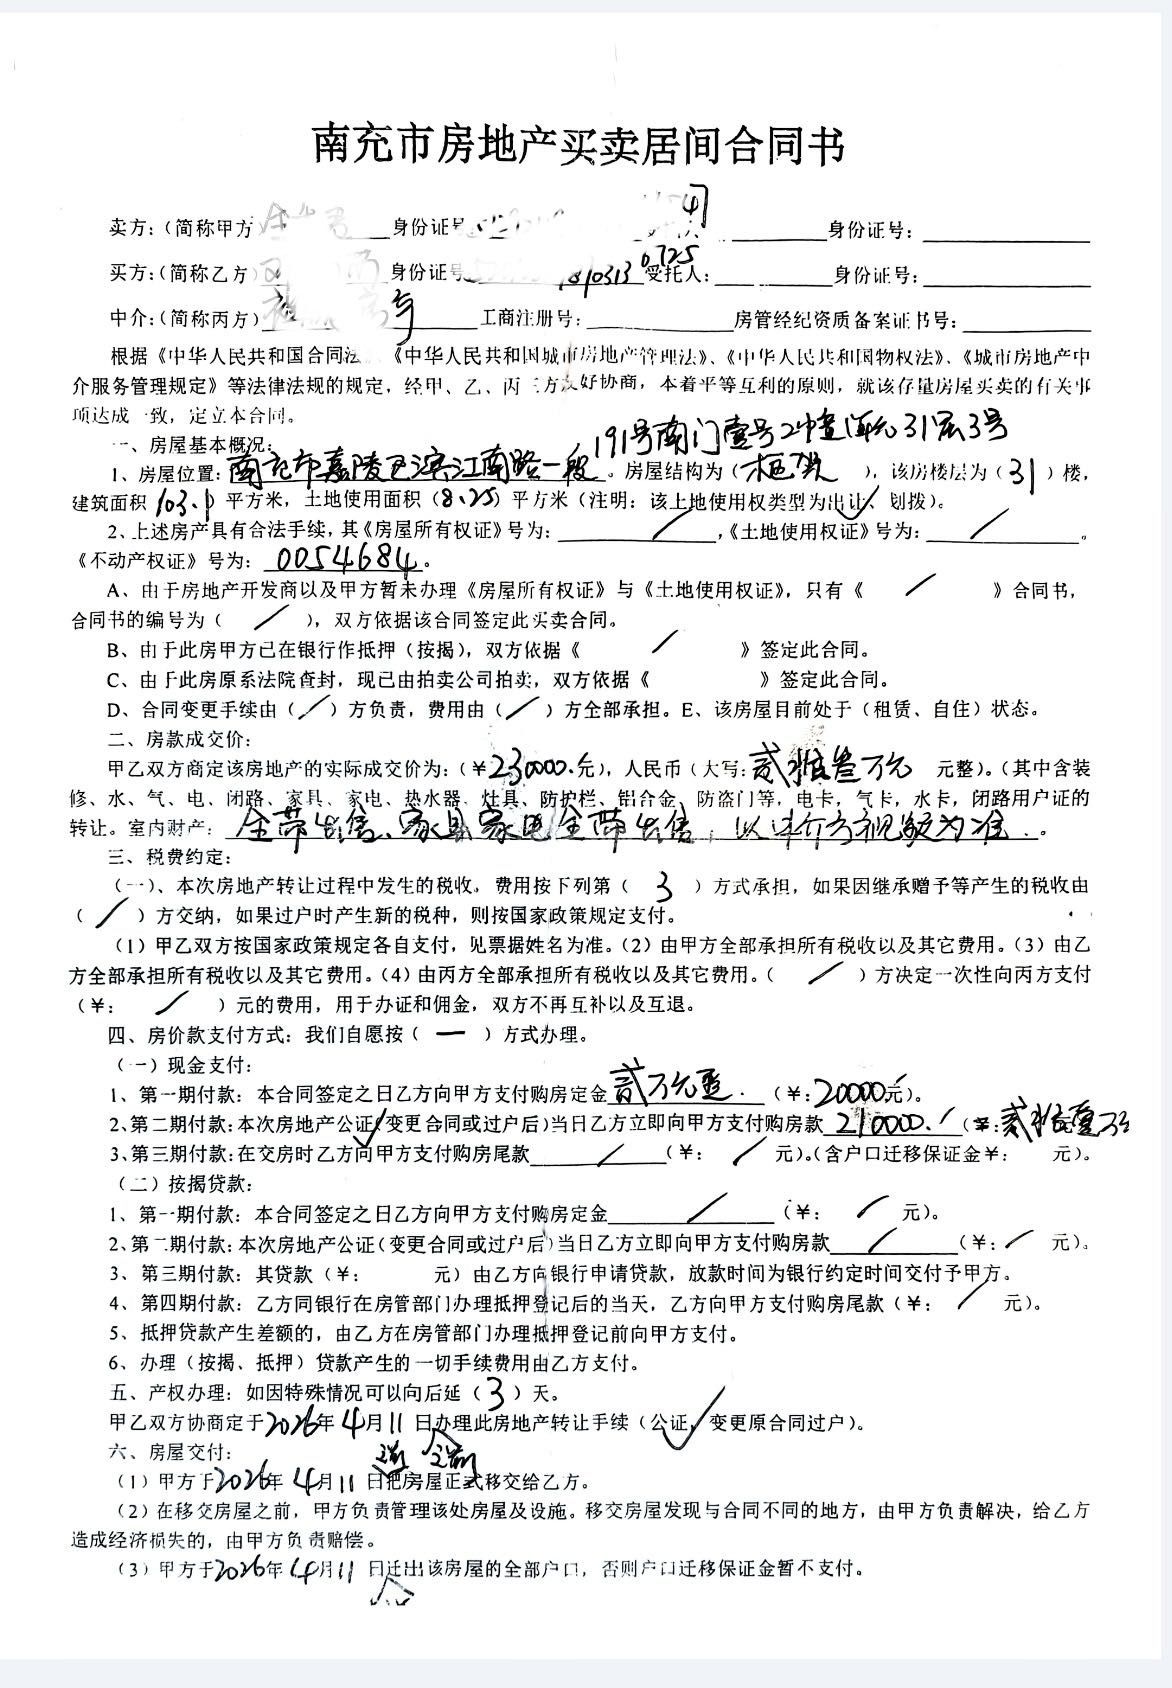 南充市房地产买卖居间合同书
卖方:(简称甲方 身份证号 身份证号:
买方:(简称乙方) 身份证号 810313 0725 受托人: 身份证号:
中介:(简称丙方) 工商注册号: 房管经纪资质备案证书号:
根据《中华人民共和国合同法》、《中华人民共和国城市房地产管理法》、《中华人民共和国物权法》、《城市房地产中
介服务管理规定》等法律法规的规定,经甲、乙、丙三方友好协商,本着平等互利的原则,就该存量房屋买卖的有关事
项达成一致,定立本合同。
一、房屋基本概况:
1、房屋位置:南充市嘉陵区滨江南路一段191号南门壹号2幢壹单元31层3号。房屋结构为(框架),该房楼层为(31)楼,
建筑面积103.1平方米,土地使用面积(8.25)平方米(注明:该上地使用权类型为出让✓、划拨)。
2、上述房产具有合法手续,其《房屋所有权证》号为: / ,《土地使用权证》号为: / 。
《不动产权证》号为:0054684。
A、由于房地产开发商以及甲方暂未办理《房屋所有权证》与《土地使用权证》,只有《 / 》合同书,
合同书的编号为( / ),双方依据该合同签定此买卖合同。
B、由于此房甲方已在银行作抵押(按揭),双方依据《 / 》签定此合同。
C、由于此房原系法院查封,现已由拍卖公司拍卖,双方依据《 》签定此合同。
D、合同变更手续由( / )方负责,费用由( / )方全部承担。E、该房屋目前处于(租赁、自住)状态。
二、房款成交价:
甲乙双方商定该房地产的实际成交价为:(¥230000.元),人民币(大写:贰拾叁万元 元整)。(其中含装
修、水、气、电、闭路、家具、家电、热水器、灶具、防护栏、铝合金、防盗门等,电卡,气卡,水卡,闭路用户证的
转让。室内财产:全带出售、家具家电全带出售,以中介方视频为准.。
三、税费约定:
(一)、本次房地产转让过程中发生的税收。费用按下列第( 3 )方式承担,如果因继承赠予等产生的税收由
( / )方交纳,如果过户时产生新的税种,则按国家政策规定支付。
(1)甲乙双方按国家政策规定各自支付,见票据姓名为准。(2)由甲方全部承担所有税收以及其它费用。(3)由乙
方全部承担所有税收以及其它费用。(4)由丙方全部承担所有税收以及其它费用。( / )方决定一次性向丙方支付
(¥: / )元的费用,用于办证和佣金,双方不再互补以及互退。
四、房价款支付方式:我们自愿按( 一 )方式办理。
(一)现金支付:
1、第一期付款:本合同签定之日乙方向甲方支付购房定金贰万元整.(¥:20000元)。
2、第二期付款:本次房地产公证(✓变更合同或过户后)当日乙方立即向甲方支付购房款 210000./(¥:贰拾壹万元
3、第三期付款:在交房时乙方向甲方支付购房尾款 / (¥: / 元)。(含户口迁移保证金¥: 元)。
(二)按揭贷款:
1、第一期付款:本合同签定之日乙方向甲方支付购房定金 / (¥: / 元)。
2、第二期付款:本次房地产公证(变更合同或过户后)当日乙方立即向甲方支付购房款 / (¥: / 元)。
3、第三期付款:其贷款(¥: 元)由乙方向银行申请贷款,放款时间为银行约定时间交付予甲方。
4、第四期付款:乙方同银行在房管部门办理抵押登记后的当天,乙方向甲方支付购房尾款(¥: / 元)。
5、抵押贷款产生差额的,由乙方在房管部门办理抵押登记前向甲方支付。
6、办理(按揭、抵押)贷款产生的一切手续费用由乙方支付。
五、产权办理:如因特殊情况可以向后延(3)天。
甲乙双方协商定于2026年4月11日办理此房地产转让手续(公证✓、变更原合同过户)。
六、房屋交付:
(1)甲方于2026年4月11日把房屋正式移交给乙方。
(2)在移交房屋之前,甲方负责管理该处房屋及设施。移交房屋发现与合同不同的地方,由甲方负责解决,给乙方
造成经济损失的,由甲方负责赔偿。
(3)甲方于2026年4月11日迁出该房屋的全部户口,否则户口迁移保证金暂不支付。